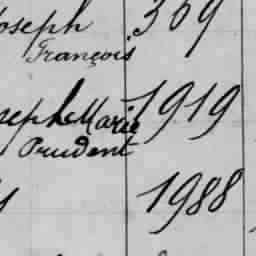 Joseph 369
François
Joseph Marie 1919
Prudent
1988